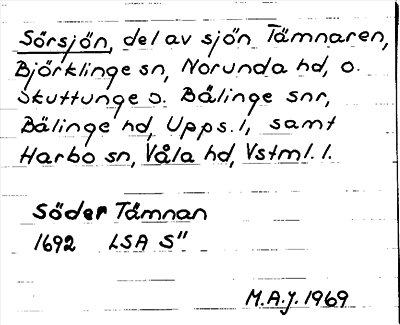 Sörsjön, del av sjön Tämnaren,
Björklinge sn, Norunda hd, o.
Skuttunge o. Bälinge snr,
Bälinge hd, Upps. l., samt
Harbo sn, Våla hd, Vstml. l.
Söder Tämnan
1692 LSA S"
M.A.J. 1969